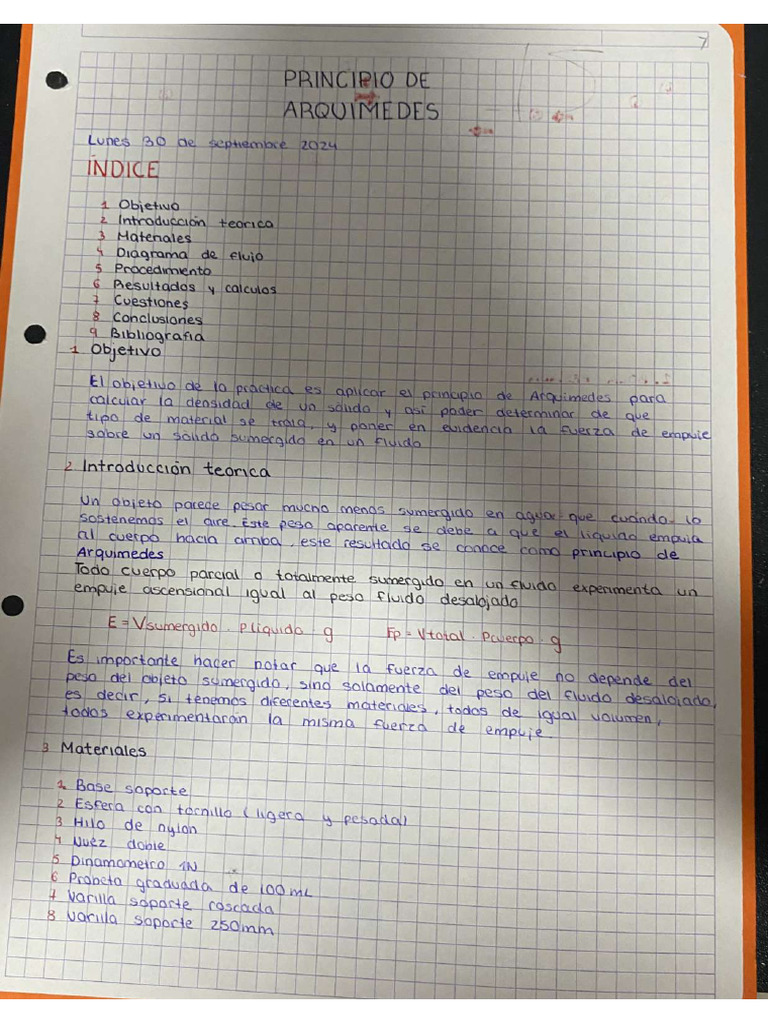 7
PRINCIPIO DE
ARQUIMEDES
Lunes 30 de septiembre 2024
ÍNDICE
1 Objetivo
2 Introducción teorica
3 Materiales
4 Diagrama de flujo
5 Procedimiento
6 Resultados y calculos
7 Cuestiones
8 Conclusiones
9 Bibliografia
1 Objetivo
El objetivo de la práctica es aplicar el principio de Arquimedes para
calcular la densidad de un sólido y así poder determinar de que
tipo de material se trata, y poner en evidencia la fuerza de empuje
sobre un sólido sumergido en un fluido
2 Introducción teorica
Un objeto parece pesar mucho menos sumergido en agua que cuando lo
sostenemos el aire. Este peso aparente se debe a que el liquido empuja
al cuerpo hacia arriba, este resultado se conoce como principio de
Arquimedes
Todo cuerpo parcial o totalmente sumergido en un fluido experimenta un
empuje ascensional igual al peso fluido desalojado
E = Vsumergido . ρliquido . g Fp = Vtotal . ρcuerpo . g
Es importante hacer notar que la fuerza de empuje no depende del
peso del objeto sumergido, sino solamente del peso del fluido desalojado,
es decir, si tenemos diferentes materiales, todos de igual volumen,
todos experimentarán la misma fuerza de empuje
3 Materiales
1 Base soporte
2 Esfera con tornillo (ligera y pesada)
3 Hilo de nylon
4 Nuez doble
5 Dinamometro 1N
6 Probeta graduada de 100mL
7 Varilla soporte roscada
8 Varilla soporte 250mm